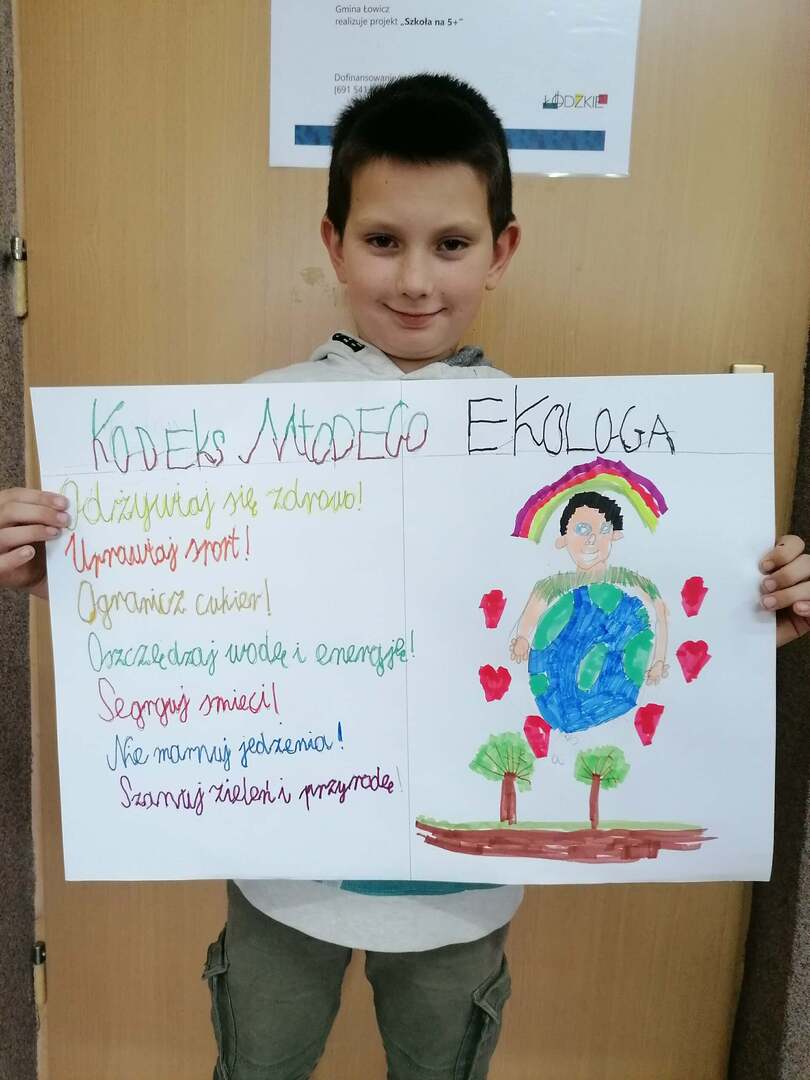 Gmina Łowicz
realizuje projekt „Szkoła na 5+”
Dofinansowanie
(691 541
ŁÓDZKIE
KODEKS MŁODEGO EKOLOGA
Odżywiaj się zdrowo!
Uprawiaj sport!
Ogranicz cukier!
Oszczędzaj wodę i energię!
Segrguj śmieci!
Nie marnuj jedzenia!
Szanuj zieleń i przyrodę!